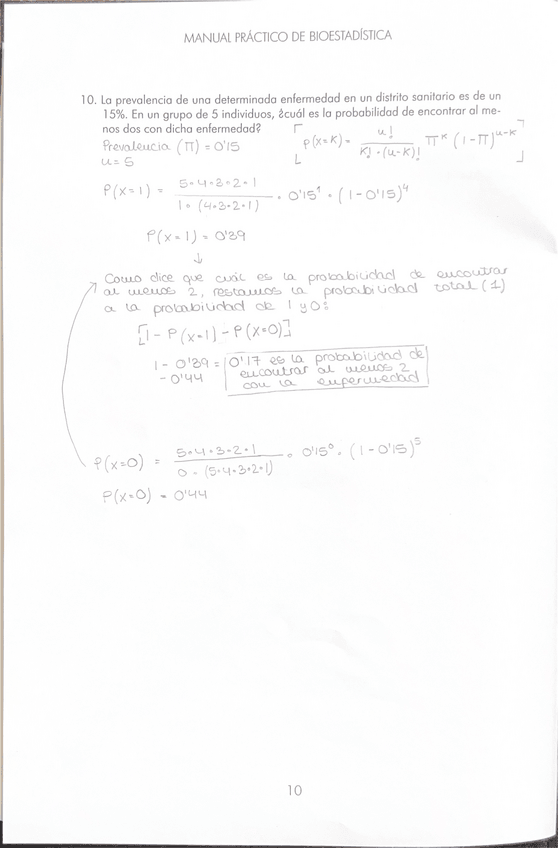 MANUAL PRÁCTICO DE BIOESTADÍSTICA
10. La prevalencia de una determinada enfermedad en un distrito sanitario es de un
15%. En un grupo de 5 individuos, ¿cuál es la probabilidad de encontrar al me-
nos dos con dicha enfermedad?
Prevalencia (π) = 0'15
n = 5
[P(x=K) = n! / K! · (n-K)! π^K (1-π)^n-K]
P(x=1) = 5·4·3·2·1 / 1·(4·3·2·1) · 0'15^1 · (1-0'15)^4
P(x=1) = 0'39
↓
Como dice que cuál es la probabilidad de encontrar
al menos 2, restamos la probabilidad total (1)
a la probabilidad de 1 y 0:
[1 - P(x=1) - P(x=0)]
1 - 0'39 - 0'44 = 0'17 es la probabilidad de
encontrar al menos 2
con la enfermedad
P(x=0) = 5·4·3·2·1 / 0·(5·4·3·2·1) · 0'15^0 · (1-0'15)^5
P(x=0) = 0'44
10